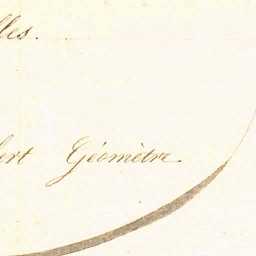 lles.
bert Géomètre